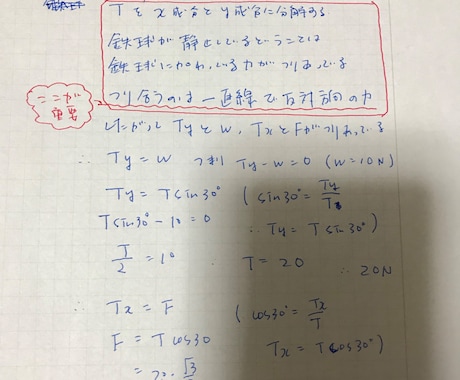 Tをx成分とy成分に分解する
鉄球が静止しているということは
鉄球にかかっている力がつりあっている
つり合うのは一直線で反対方向の力
ここが
重要
したがって TyとW、TxとFがつりあっている
∴ Ty = W つまり Ty - W = 0 (W = 10N)
Ty = T sin30° (sin30° = Ty/T
T sin30° - 10 = 0 ∴ Ty = T sin30°)
T/2 = 10 T = 20 ∴ 20N
∴ Tx = F (cos30° = Tx/T
F = T cos30 Tx = T cos30°)
= 20・√3